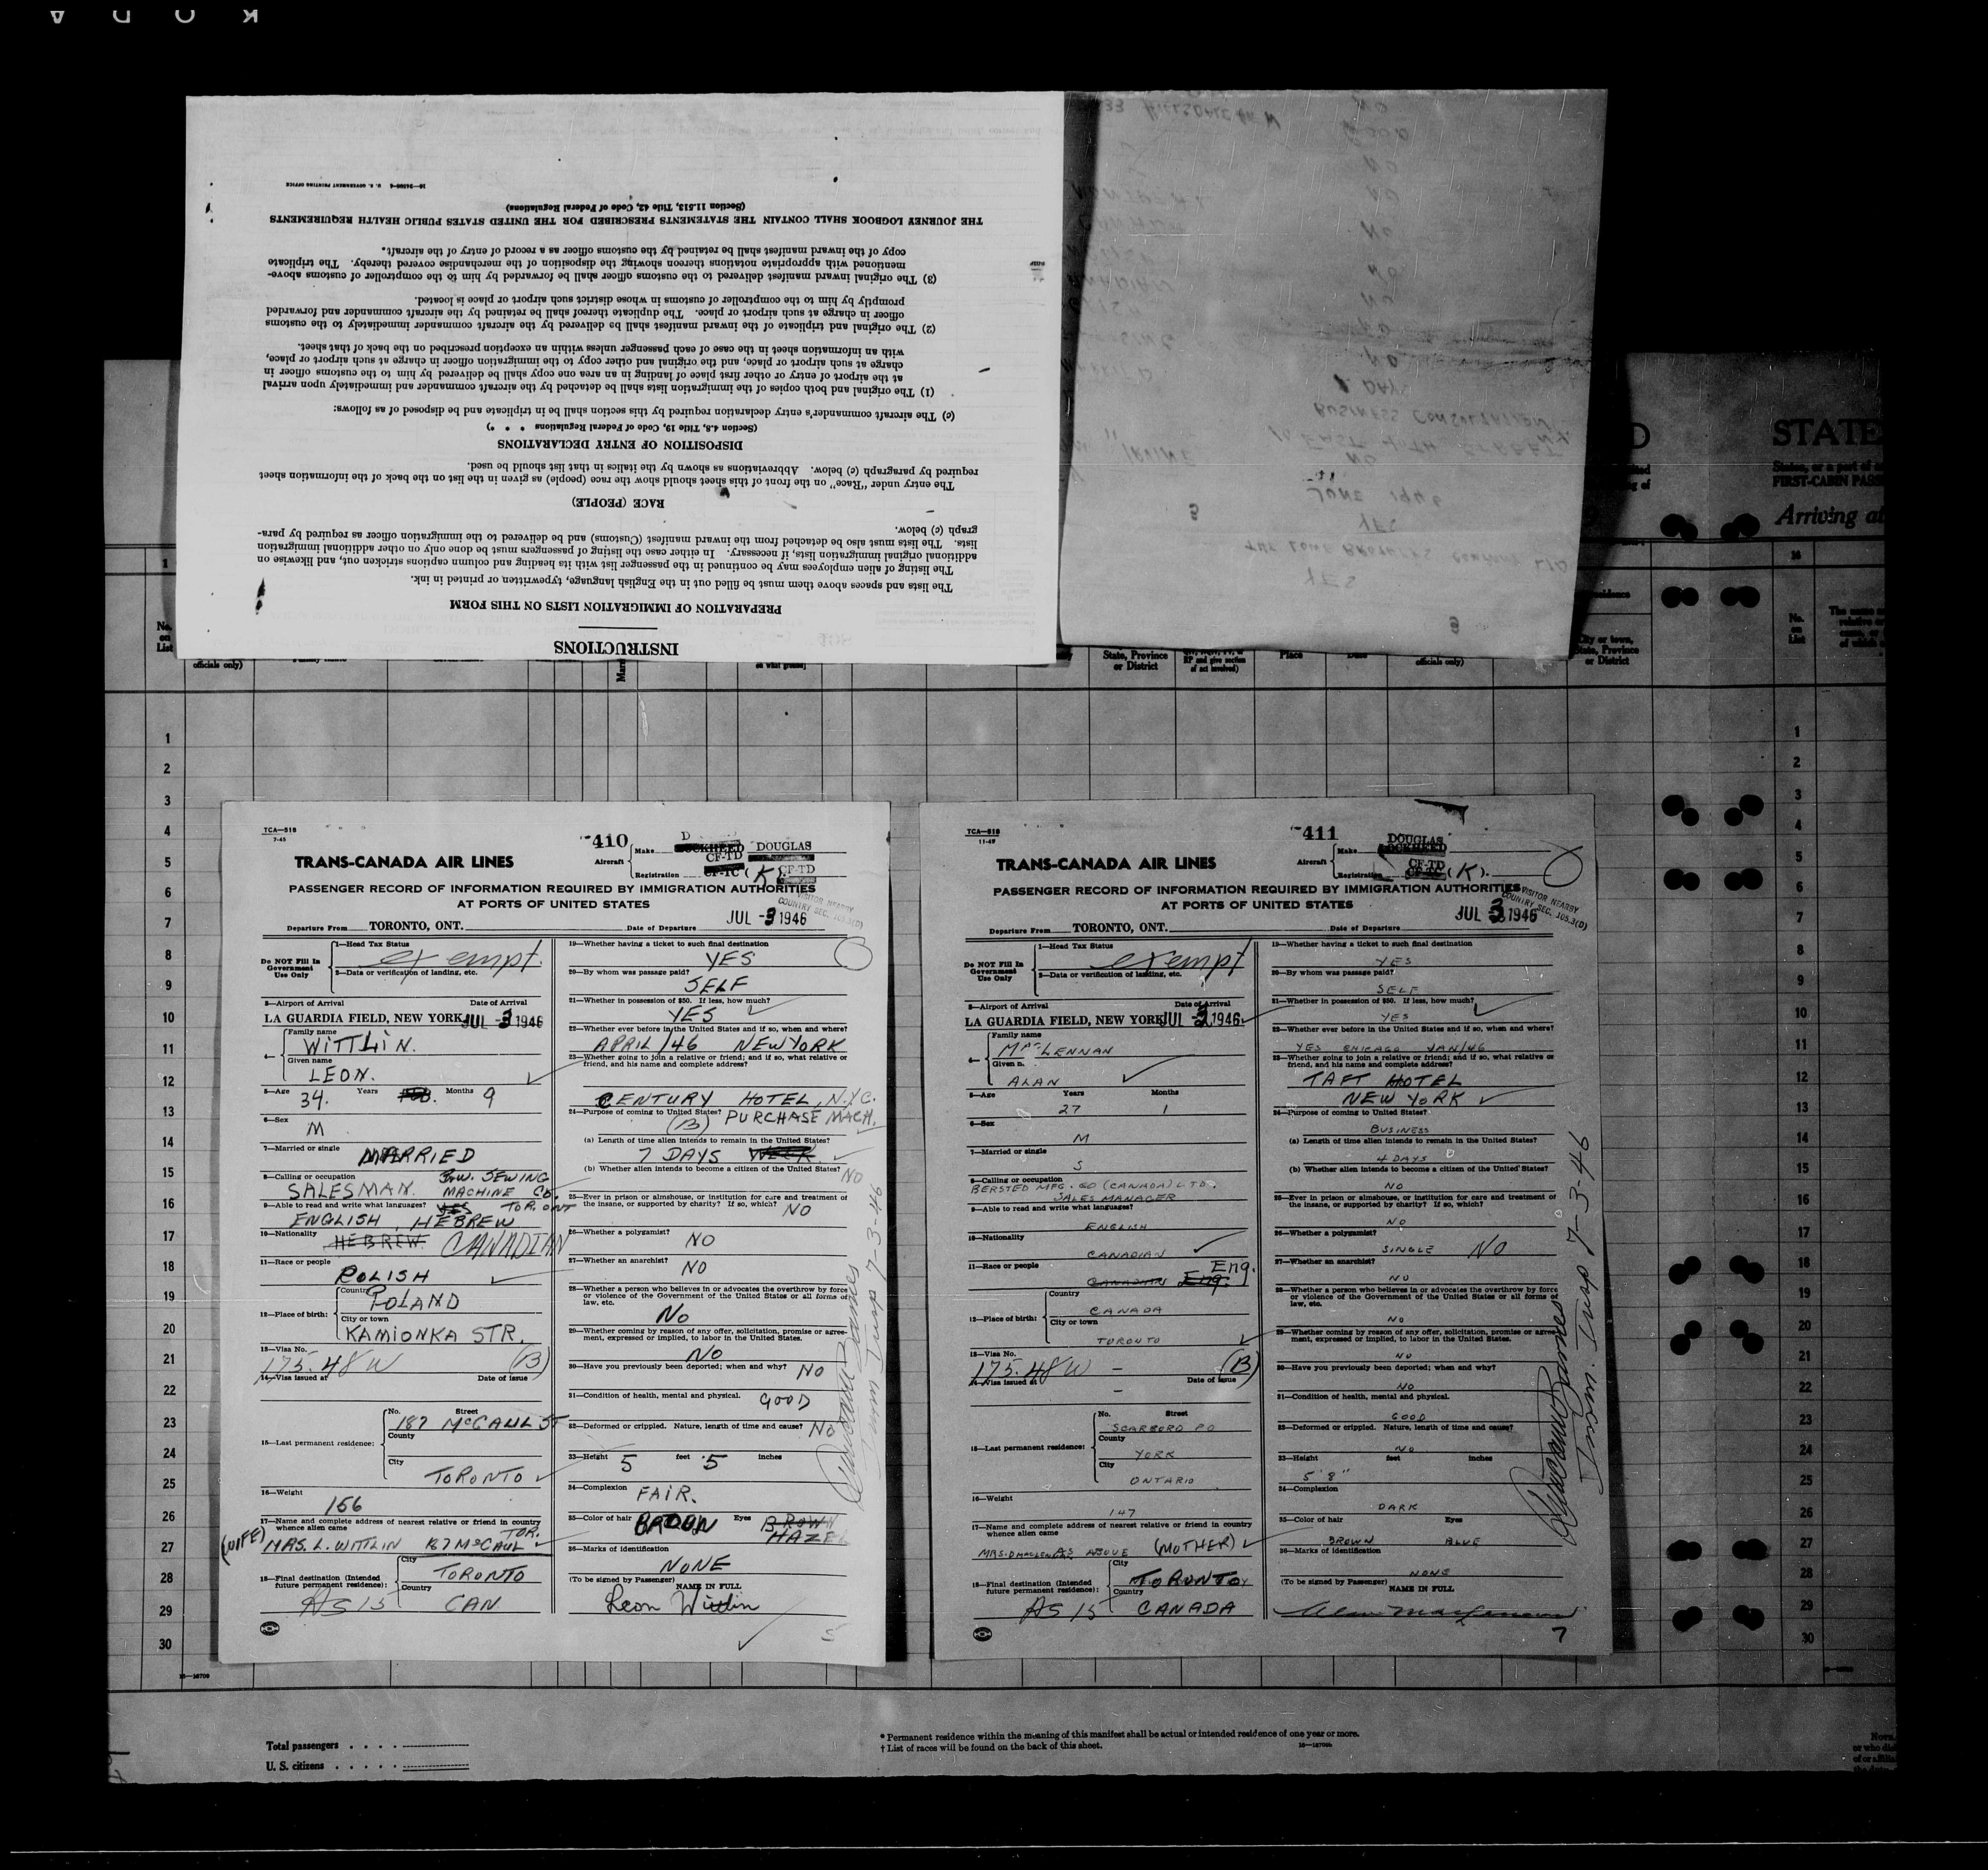 KODA
INSTRUCTIONS
PREPARATION OF IMMIGRATION LISTS ON THIS FORM
The lists and spaces above them must be filled out in the English language, typewritten or printed in ink.
The listing of alien employees may be continued in the passenger list with its heading and column captions stricken out, and likewise on
additional original immigration lists, if necessary. In either case the listing of passengers must be done only on other additional immigration
lists. The lists must also be detached from the inward manifest (Customs) and be delivered to the immigration officer as required by para-
graph (c) below.
RACE (PEOPLE)
The entry under "Race" on the front of this sheet should show the race (people) as given in the list on the back of the information sheet
required by paragraph (c) below. Abbreviations as shown by the italics in that list should be used.
DISPOSITION OF ENTRY DECLARATIONS
(Section 4.8, Title 19, Code of Federal Regulations * * *)
(c) The aircraft commander's entry declaration required by this section shall be in triplicate and be disposed of as follows:
(1) The original and both copies of the immigration lists shall be detached by the aircraft commander and immediately upon arrival
at the airport of entry or other first place of landing in an area one copy shall be delivered by him to the customs officer in
charge at such airport or place, and the original and other copy to the immigration officer in charge at such airport or place,
with an information sheet in the case of each passenger unless within an exception prescribed on the back of that sheet.
(2) The original and triplicate of the inward manifest shall be delivered by the aircraft commander immediately to the customs
officer in charge at such airport or place. The duplicate thereof shall be retained by the aircraft commander and forwarded
promptly by him to the comptroller of customs in whose district such airport or place is located.
(3) The original inward manifest delivered to the customs officer shall be forwarded by him to the comptroller of customs above-
mentioned with appropriate notations thereon showing the disposition of the merchandise covered thereby. The triplicate
copy of the inward manifest shall be retained by the customs officer as a record of entry of the aircraft.
THE JOURNEY LOGBOOK SHALL CONTAIN THE STATEMENTS PRESCRIBED FOR THE UNITED STATES PUBLIC HEALTH REQUIREMENTS
(Section 11.513, Title 42, Code of Federal Regulations)
U. S. GOVERNMENT PRINTING OFFICE
YES
THE LOWE BROTHERS COMPANY LTD
YES
JUNE 1946
NO
10 EAST 40TH STREET N.Y.
BUSINESS CONSULTATION
1 DAY
NO
NO
NO
NO
NO
NO
NO
GOOD
NO
STATE
FIRST-CABIN PASS
Arriving at
No. on List
officials only)
State, Province or District
RP and give section of act involved)
Place
officials only)
City or town, State, Province or District
No. on List
1
2
3
4
5
6
7
8
9
10
11
12
13
14
15
16
17
18
19
20
21
22
23
24
25
26
27
28
29
30
TCA—518
7-45
410
TRANS-CANADA AIR LINES
Aircraft Make LOCKHEED DOUGLAS
Registration CF-TC CF-TD (K) CF-TD
PASSENGER RECORD OF INFORMATION REQUIRED BY IMMIGRATION AUTHORITIES
AT PORTS OF UNITED STATES
VISITOR NEARBY
COUNTRY SEC. 105.3(D)
JUL -3 1946
Departure From TORONTO, ONT. Date of Departure
Do NOT Fill In Government Use Only
1—Head Tax Status
exempt.
2—Data or verification of landing, etc.
3—Airport of Arrival Date of Arrival
LA GUARDIA FIELD, NEW YORK JUL -3 1946
4— Family name
WITTLIN.
Given name
LEON.
5—Age 34. Years Months 9
6—Sex
M
7—Married or single MARRIED
8—Calling or occupation
SALESMAN. B.W. SEWING MACHINE CO.
TOR. ONT
9—Able to read and write what languages? YES
ENGLISH, HEBREW
10—Nationality HEBREW CANADIAN
11—Race or people
POLISH
12—Place of birth: Country
POLAND
City or town
KAMIONKA STR.
13—Visa No.
175.48 W (B)
14—Visa issued at Date of issue
15—Last permanent residence: No. Street
187 McCAUL ST
County
City
TORONTO
16—Weight
156
17—Name and complete address of nearest relative or friend in country
whence alien came
(WIFE) MRS. L. WITTLIN 187 McCAUL TOR.
18—Final destination (Intended future permanent residence): City
TORONTO
Country
AS 15 CAN
19—Whether having a ticket to such final destination
YES
20—By whom was passage paid?
SELF
21—Whether in possession of $50. If less, how much?
YES
22—Whether ever before in the United States and if so, when and where?
APRIL/46 NEW YORK
23—Whether going to join a relative or friend; and if so, what relative or
friend, and his name and complete address?
CENTURY HOTEL, N.Y.C.
24—Purpose of coming to United States? PURCHASE MACH.
(B)
(a) Length of time alien intends to remain in the United States?
7 DAYS WEEK.
(b) Whether alien intends to become a citizen of the United States? NO
25—Ever in prison or almshouse, or institution for care and treatment of
the insane, or supported by charity? If so, which? NO
26—Whether a polygamist?
NO
27—Whether an anarchist?
NO
28—Whether a person who believes in or advocates the overthrow by force
or violence of the Government of the United States or all forms of
law, etc.
NO
29—Whether coming by reason of any offer, solicitation, promise or agree-
ment, expressed or implied, to labor in the United States.
NO
30—Have you previously been deported; when and why? NO
31—Condition of health, mental and physical.
GOOD
32—Deformed or crippled. Nature, length of time and cause? NO
33—Height 5 feet 5 inches
34—Complexion
FAIR.
35—Color of hair BROWN Eyes BROWN
HAZEL
36—Marks of identification
NONE
(To be signed by Passenger) NAME IN FULL
Leon Wittlin
Imm. Insp 7-3-46
TCA—518
11-45
411
TRANS-CANADA AIR LINES
Aircraft Make DOUGLAS LOCKHEED
Registration CF-TD CF-TC (K).
PASSENGER RECORD OF INFORMATION REQUIRED BY IMMIGRATION AUTHORITIES
AT PORTS OF UNITED STATES
VISITOR NEARBY
COUNTRY SEC. 105.3(D)
JUL 3 1946
Departure From TORONTO, ONT. Date of Departure
Do NOT Fill In Government Use Only
1—Head Tax Status
exempt
2—Data or verification of landing, etc.
3—Airport of Arrival Date of Arrival
LA GUARDIA FIELD, NEW YORK JUL 3 1946
4— Family name
MacLENNAN
Given n.
ALAN
5—Age Years Months
27 1
6—Sex
M
7—Married or single
S
8—Calling or occupation
BERSTED MFG. CO (CANADA) LTD.
SALES MANAGER
9—Able to read and write what languages?
ENGLISH
10—Nationality
CANADIAN
11—Race or people Eng.
CANADIAN Eng.
12—Place of birth: Country
CANADA
City or town
TORONTO
13—Visa No.
175.48 W – (B)
14—Visa issued at Date of issue
–
15—Last permanent residence: No. Street
SCARBORO PO
County
YORK
City
ONTARIO
16—Weight
147
17—Name and complete address of nearest relative or friend in country
whence alien came
MRS. D MACLENNAN AS ABOVE (MOTHER)
18—Final destination (Intended future permanent residence): City
TORONTO
Country
AS 15 CANADA
19—Whether having a ticket to such final destination
YES
20—By whom was passage paid?
SELF
21—Whether in possession of $50. If less, how much?
YES
22—Whether ever before in the United States and if so, when and where?
YES CHICAGO JAN/46
23—Whether going to join a relative or friend; and if so, what relative or
friend, and his name and complete address?
TAFT HOTEL
NEW YORK
24—Purpose of coming to United States?
BUSINESS
(a) Length of time alien intends to remain in the United States?
4 DAYS
(b) Whether alien intends to become a citizen of the United States?
NO
25—Ever in prison or almshouse, or institution for care and treatment of
the insane, or supported by charity? If so, which?
NO
26—Whether a polygamist?
SINGLE NO
27—Whether an anarchist?
NO
28—Whether a person who believes in or advocates the overthrow by force
or violence of the Government of the United States or all forms of
law, etc.
NO
29—Whether coming by reason of any offer, solicitation, promise or agree-
ment, expressed or implied, to labor in the United States.
NO
30—Have you previously been deported; when and why?
NO
31—Condition of health, mental and physical.
GOOD
32—Deformed or crippled. Nature, length of time and cause?
NO
33—Height feet inches
5' 8"
34—Complexion
DARK
35—Color of hair Eyes
BROWN BLUE
36—Marks of identification
NONE
(To be signed by Passenger) NAME IN FULL
Alan MacLennan
7
Imm. Insp 7-3-46
16—18709
Total passengers
U. S. citizens
* Permanent residence within the meaning of this manifest shall be actual or intended residence of one year or more.
† List of races will be found on the back of this sheet.